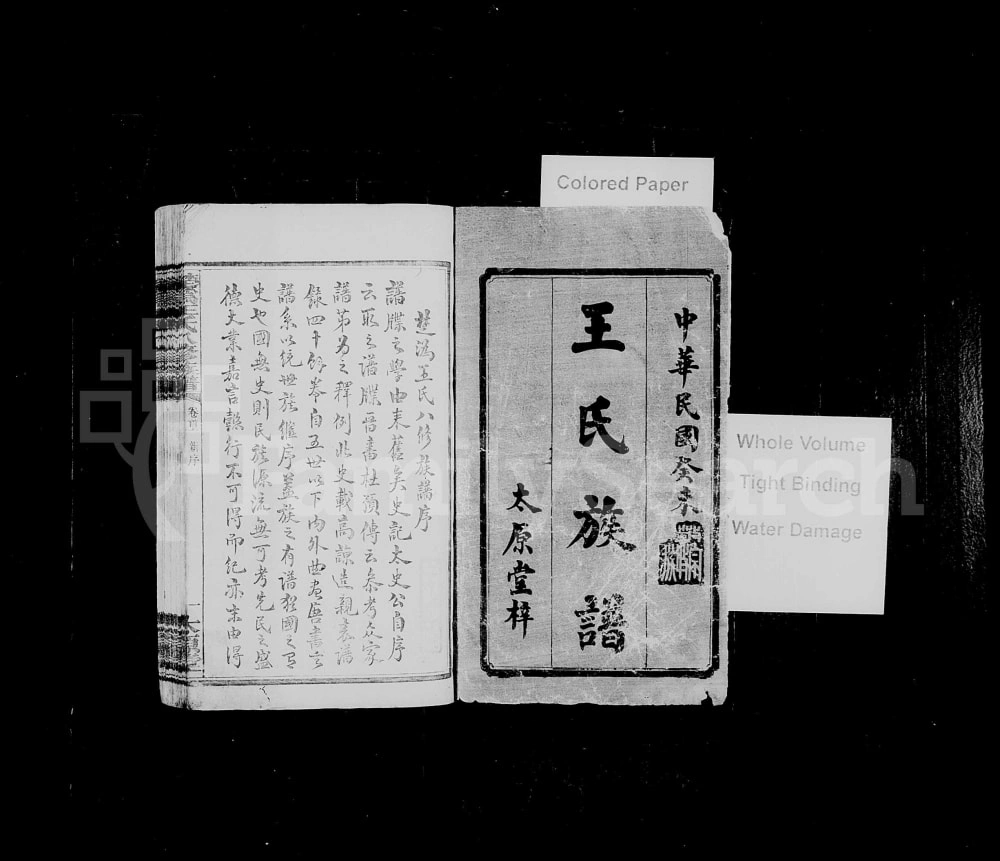 Colored Paper
Whole Volume
Tight Binding
Water Damage
中華民國癸未
王氏族譜
太原堂梓
楚溈王氏八修族譜序
譜牒之學由來舊矣史記太史公自序
云取之譜牒晉書杜預傳云參考众家
譜第为之釋例此史載高諒造親表譜
錄四十餘卷自五世以下内外曲盡
譜系以統世族継序蓋族之有譜猶國之有
史也國無史則民族源流無可考先民之盛
德大業嘉言懿行不可得而纪亦末由得
卷四 首序
FamilySearch